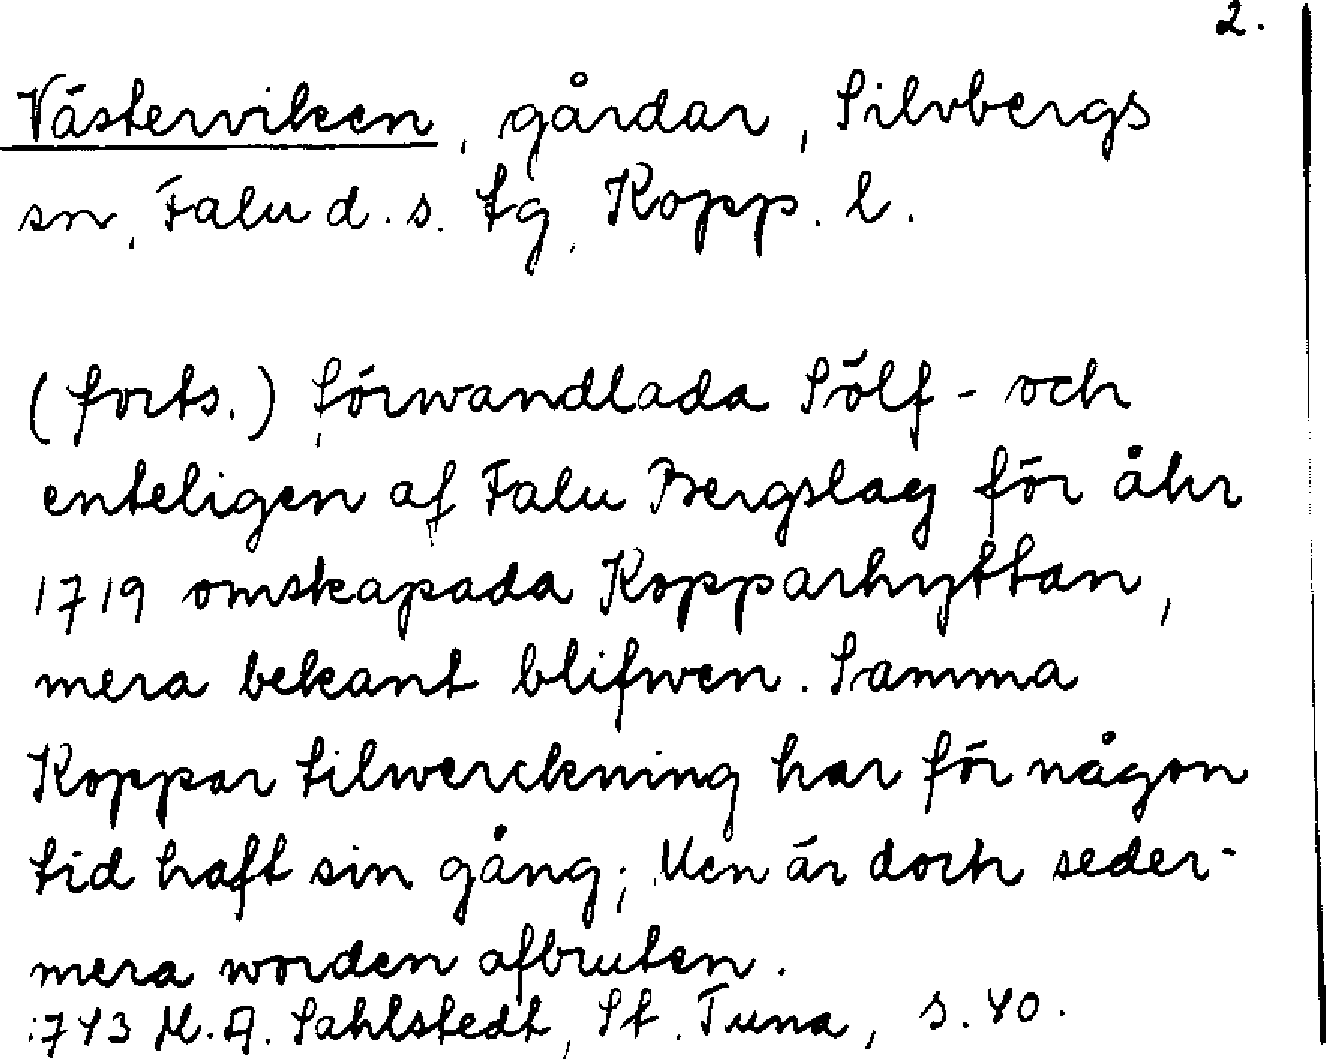 2.
Västerviken, gårdar, Silvbergs
sn, Falu d.s. tg, Kopp. l.
(forts.) förwandlada Sölf- och
enteligen af Falu Bergslag för åhr
1719 omskapada Kopparhyttan,
mera bekant blifwen. Samma
Koppar tilwerckning har för någon
tid haft sin gång; Men är doch seder-
mera worden afbruten.
1743 M. A. Sahlstedt, St. Tuna, s. 40.